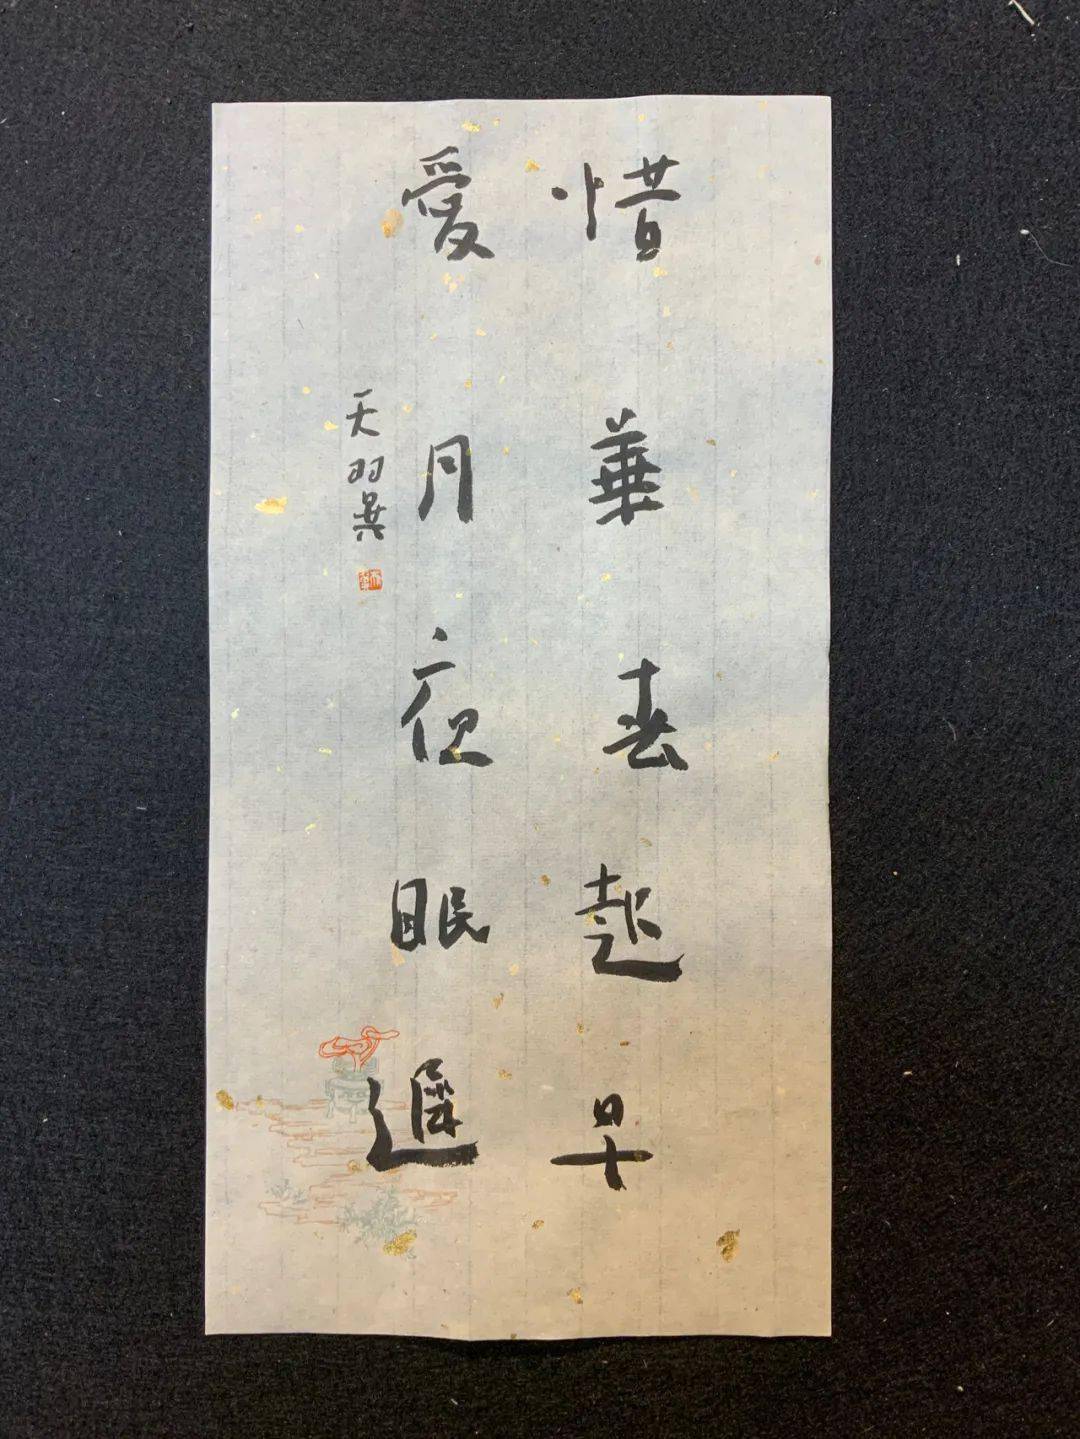 惜華春起早
愛月夜眠遲
天翼